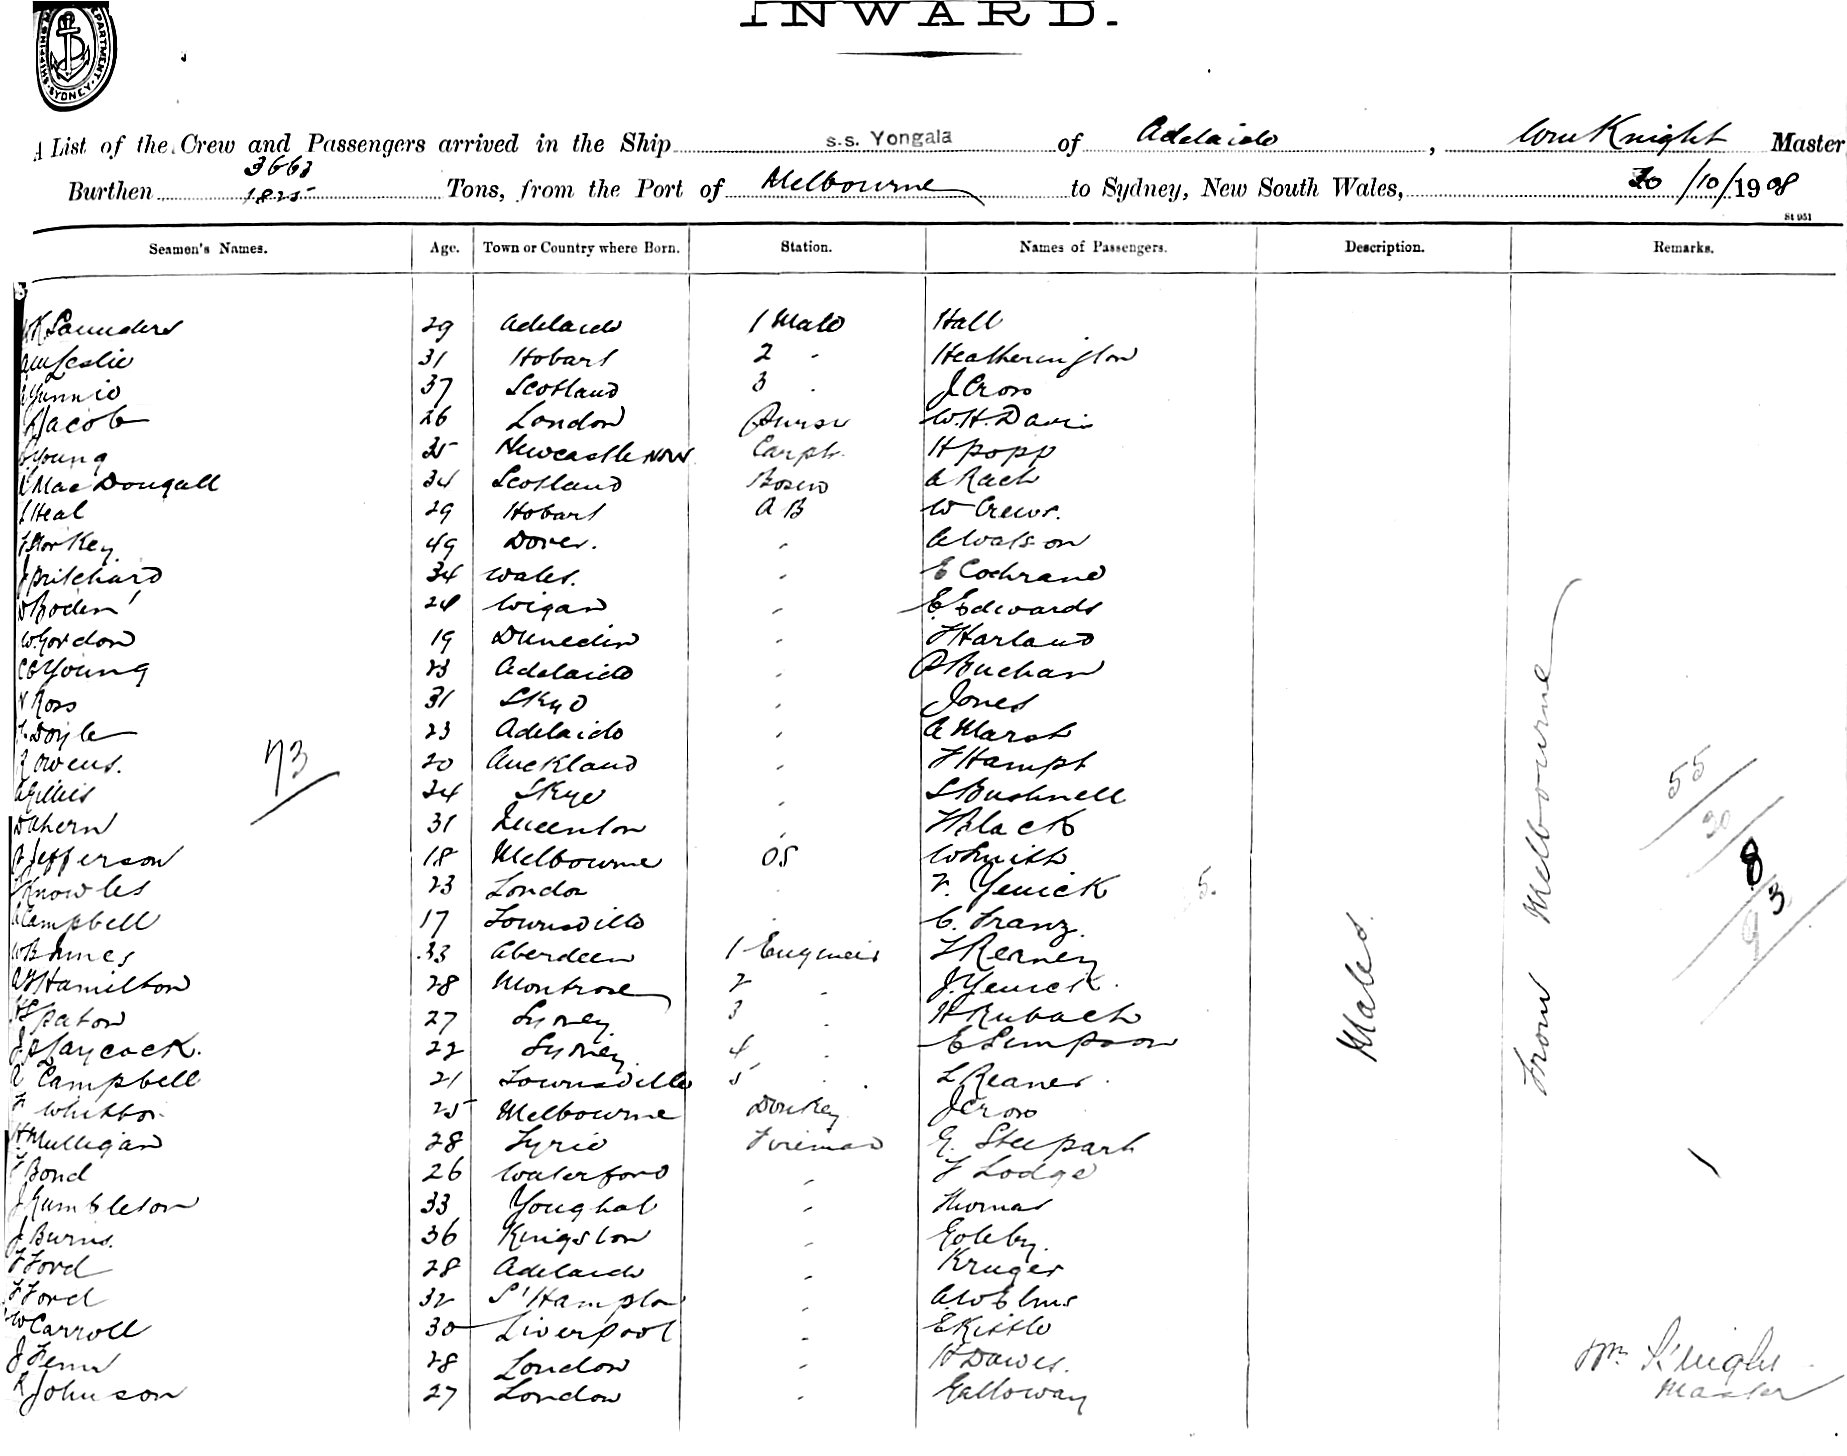 INWARD.
SHIPPING DEPARTMENT. SYDNEY
A List of the Crew and Passengers arrived in the Ship s.s. Yongala of Adelaide, Wm Knight Master
3663
Burthen 1825 Tons, from the Port of Melbourne to Sydney, New South Wales, 30/10/1908
St 951
Seamen's Names. Age. Town or Country where Born. Station. Names of Passengers. Description. Remarks.
Saunders 29 Adelaide 1 Mate Hall
Leslie 31 Hobart 2 " Heatherington
37 Scotland 3 " J Cross
Jacob 26 London Purser W. H. Davis
Young 35 Newcastle NSW Carptr H Popp
MacDougall 34 Scotland Bosun A Rach
Heal 29 Hobart A B W Crews.
49 Dover. " A Watson
J Pritchard 34 Wales. " E Cochrane
Boden 24 Wigan " E Edwards
W Gordon 19 Dunedin " F Harland
C C Young 23 Adelaide " P Buchan
Ross 31 Skye " Jones
Doyle 23 Adelaide " A Marsh
Owens. 20 Auckland " F Hampt
Gillies 34 Skye " S Bushnell
73
D Ahern 31 Queenton " F Black
Jefferson 18 Melbourne OS W Smith
Knowles 23 London " F. Yenick
Campbell 17 Townsville " C. Franz.
W Barnes 33 Aberdeen 1 Engineer
Hamilton 28 Montrose 2 " J. Yenick.
Paton 27 Sydney 3 " H Rubach
Laycock. 22 Sydney 4 " E Simpson
Campbell 21 Townsville 5 "
25 Melbourne Donkey J Cross
H Mulligan 28 Fireman
Bond 26 Waterford " F Lodge
J Rumbleton 33 Youghal " Thomas
J Burns. 36 Kingston "
F Ford 28 Adelaide " Kruger
F Ford 32 S'Hampton " A W Elms
W Carroll 30 Liverpool " E Kittle
J Fenn 28 London " H Dawes.
R Johnson 27 London " Galloway
Males.
From Melbourne
55
30
8
93
Wm Knight
Master